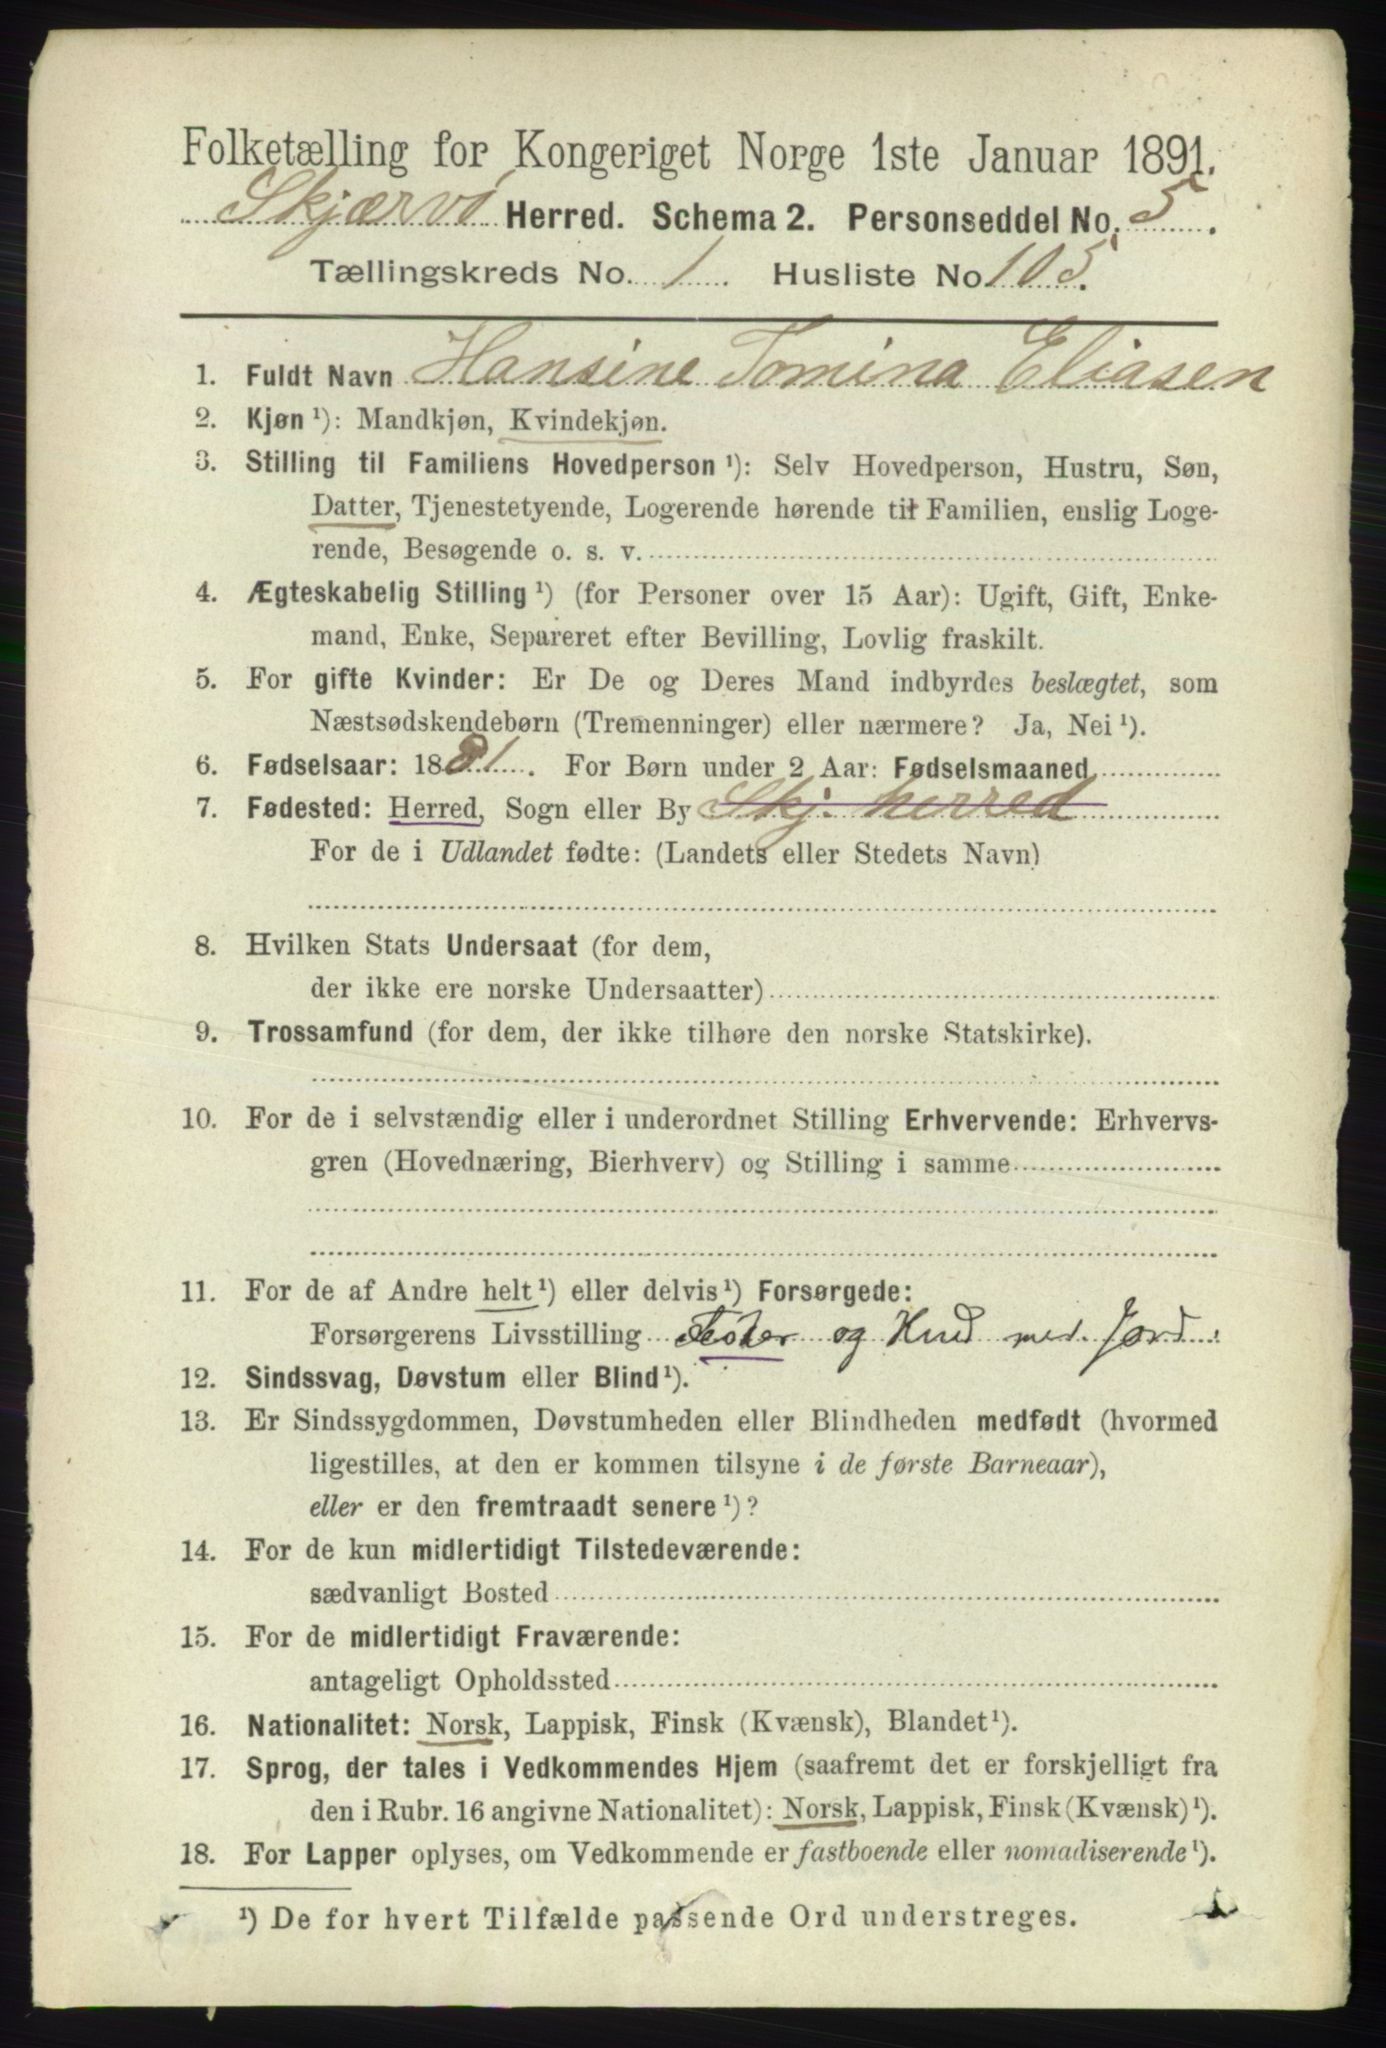 Folketælling for Kongeriget Norge 1ste Januar 1891.
Skjærvö Herred. Schema 2. Personseddel No. 5.
Tællingskreds No. 1. Husliste No 105.
1. Fuldt Navn Hansine Tomina Eliasen
2. Kjøn ¹): Mandkjøn, Kvindekjøn.
3. Stilling til Familiens Hovedperson ¹): Selv Hovedperson, Hustru, Søn,
Datter, Tjenestetyende, Logerende hørende til Familien, enslig Loge-
rende, Besøgende o. s. v.
4. Ægteskabelig Stilling ¹) (for Personer over 15 Aar): Ugift, Gift, Enke-
mand, Enke, Separeret efter Bevilling, Lovlig fraskilt.
5. For gifte Kvinder: Er De og Deres Mand indbyrdes beslægtet, som
Næstsødskendebørn (Tremenninger) eller nærmere? Ja, Nei ¹).
6. Fødselsaar: 1881. For Børn under 2 Aar: Fødselsmaaned
7. Fødested: Herred, Sogn eller By Skj. herred
For de i Udlandet fødte: (Landets eller Stedets Navn)
8. Hvilken Stats Undersaat (for dem,
der ikke ere norske Undersaatter)
9. Trossamfund (for dem, der ikke tilhøre den norske Statskirke).
10. For de i selvstændig eller i underordnet Stilling Erhvervende: Erhvervs-
gren (Hovednæring, Bierhverv) og Stilling i samme
11. For de af Andre helt ¹) eller delvis ¹) Forsørgede:
Forsørgerens Livsstilling og med Jord
12. Sindssvag, Døvstum eller Blind ¹).
13. Er Sindssygdommen, Døvstumheden eller Blindheden medfødt (hvormed
ligestilles, at den er kommen tilsyne i de første Barneaar),
eller er den fremtraadt senere ¹)?
14. For de kun midlertidigt Tilstedeværende:
sædvanligt Bosted
15. For de midlertidigt Fraværende:
antageligt Opholdssted
16. Nationalitet: Norsk, Lappisk, Finsk (Kvænsk), Blandet ¹).
17. Sprog, der tales i Vedkommendes Hjem (saafremt det er forskjelligt fra
den i Rubr. 16 angivne Nationalitet): Norsk, Lappisk, Finsk (Kvænsk) ¹).
18. For Lapper oplyses, om Vedkommende er fastboende eller nomadiserende ¹).
¹) De for hvert Tilfælde passende Ord understreges.